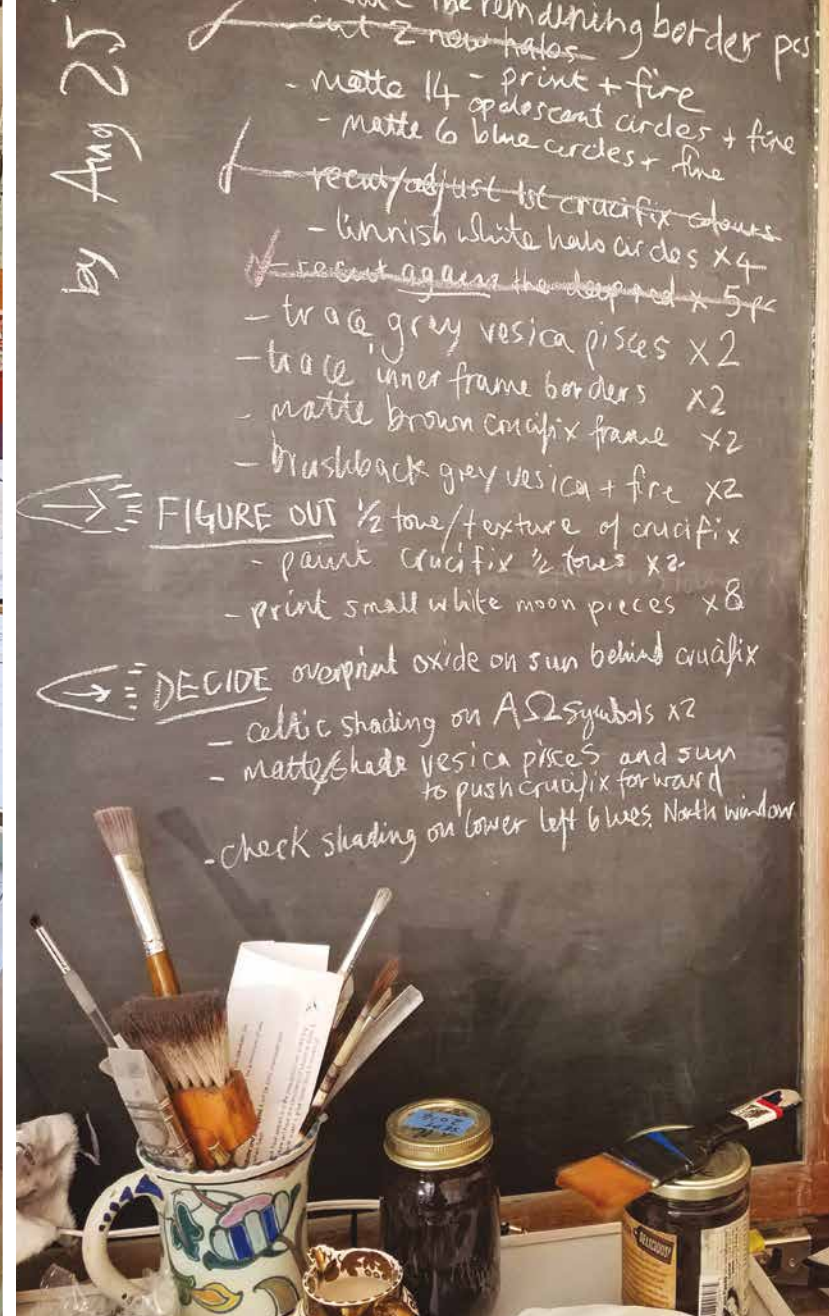 the remaining border pcs
cut 2 new halos
- print + fire
- matte 14 opalescent circles + fire
- matte 6 blue circles + fire
- recut/adjust 1st crucifix colours
- tinnish white halo circles x4
- recut again the deep red x 5 pc
- trace grey vesica pisces x2
- trace inner frame borders x2
- matte brown crucifix frame x2
- brushback grey vesica + fire x2
FIGURE OUT ½ tone/texture of crucifix
- paint crucifix ½ tones x2
- print small white moon pieces x8
DECIDE overprint oxide on sun behind crucifix
- celtic shading on AΩ symbols x2
- matte/shade vesica pisces and sun
to push crucifix forward
- check shading on lower left blues. North window
by Aug 25
DELICIOUS!